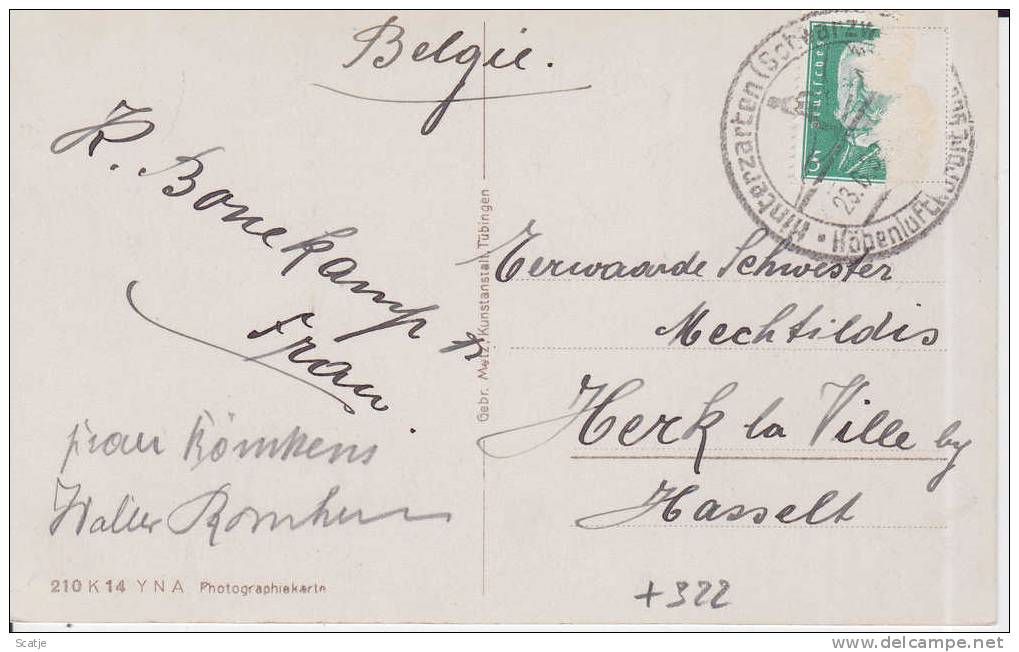 Belgie.
K. Bonekamp
Frau
Frau Römkens
Walter
210 K 14 Y N A Photographiekarte
Gebr. Metz, Kunstanstalt, Tübingen
Hinterzarten (Schwarzw
Höhenluftkurort
23.
5
Eerwaarde Schwester
Mechtildis
Herk la Ville by
Hasselt
+322
Scatje
delcampe.net